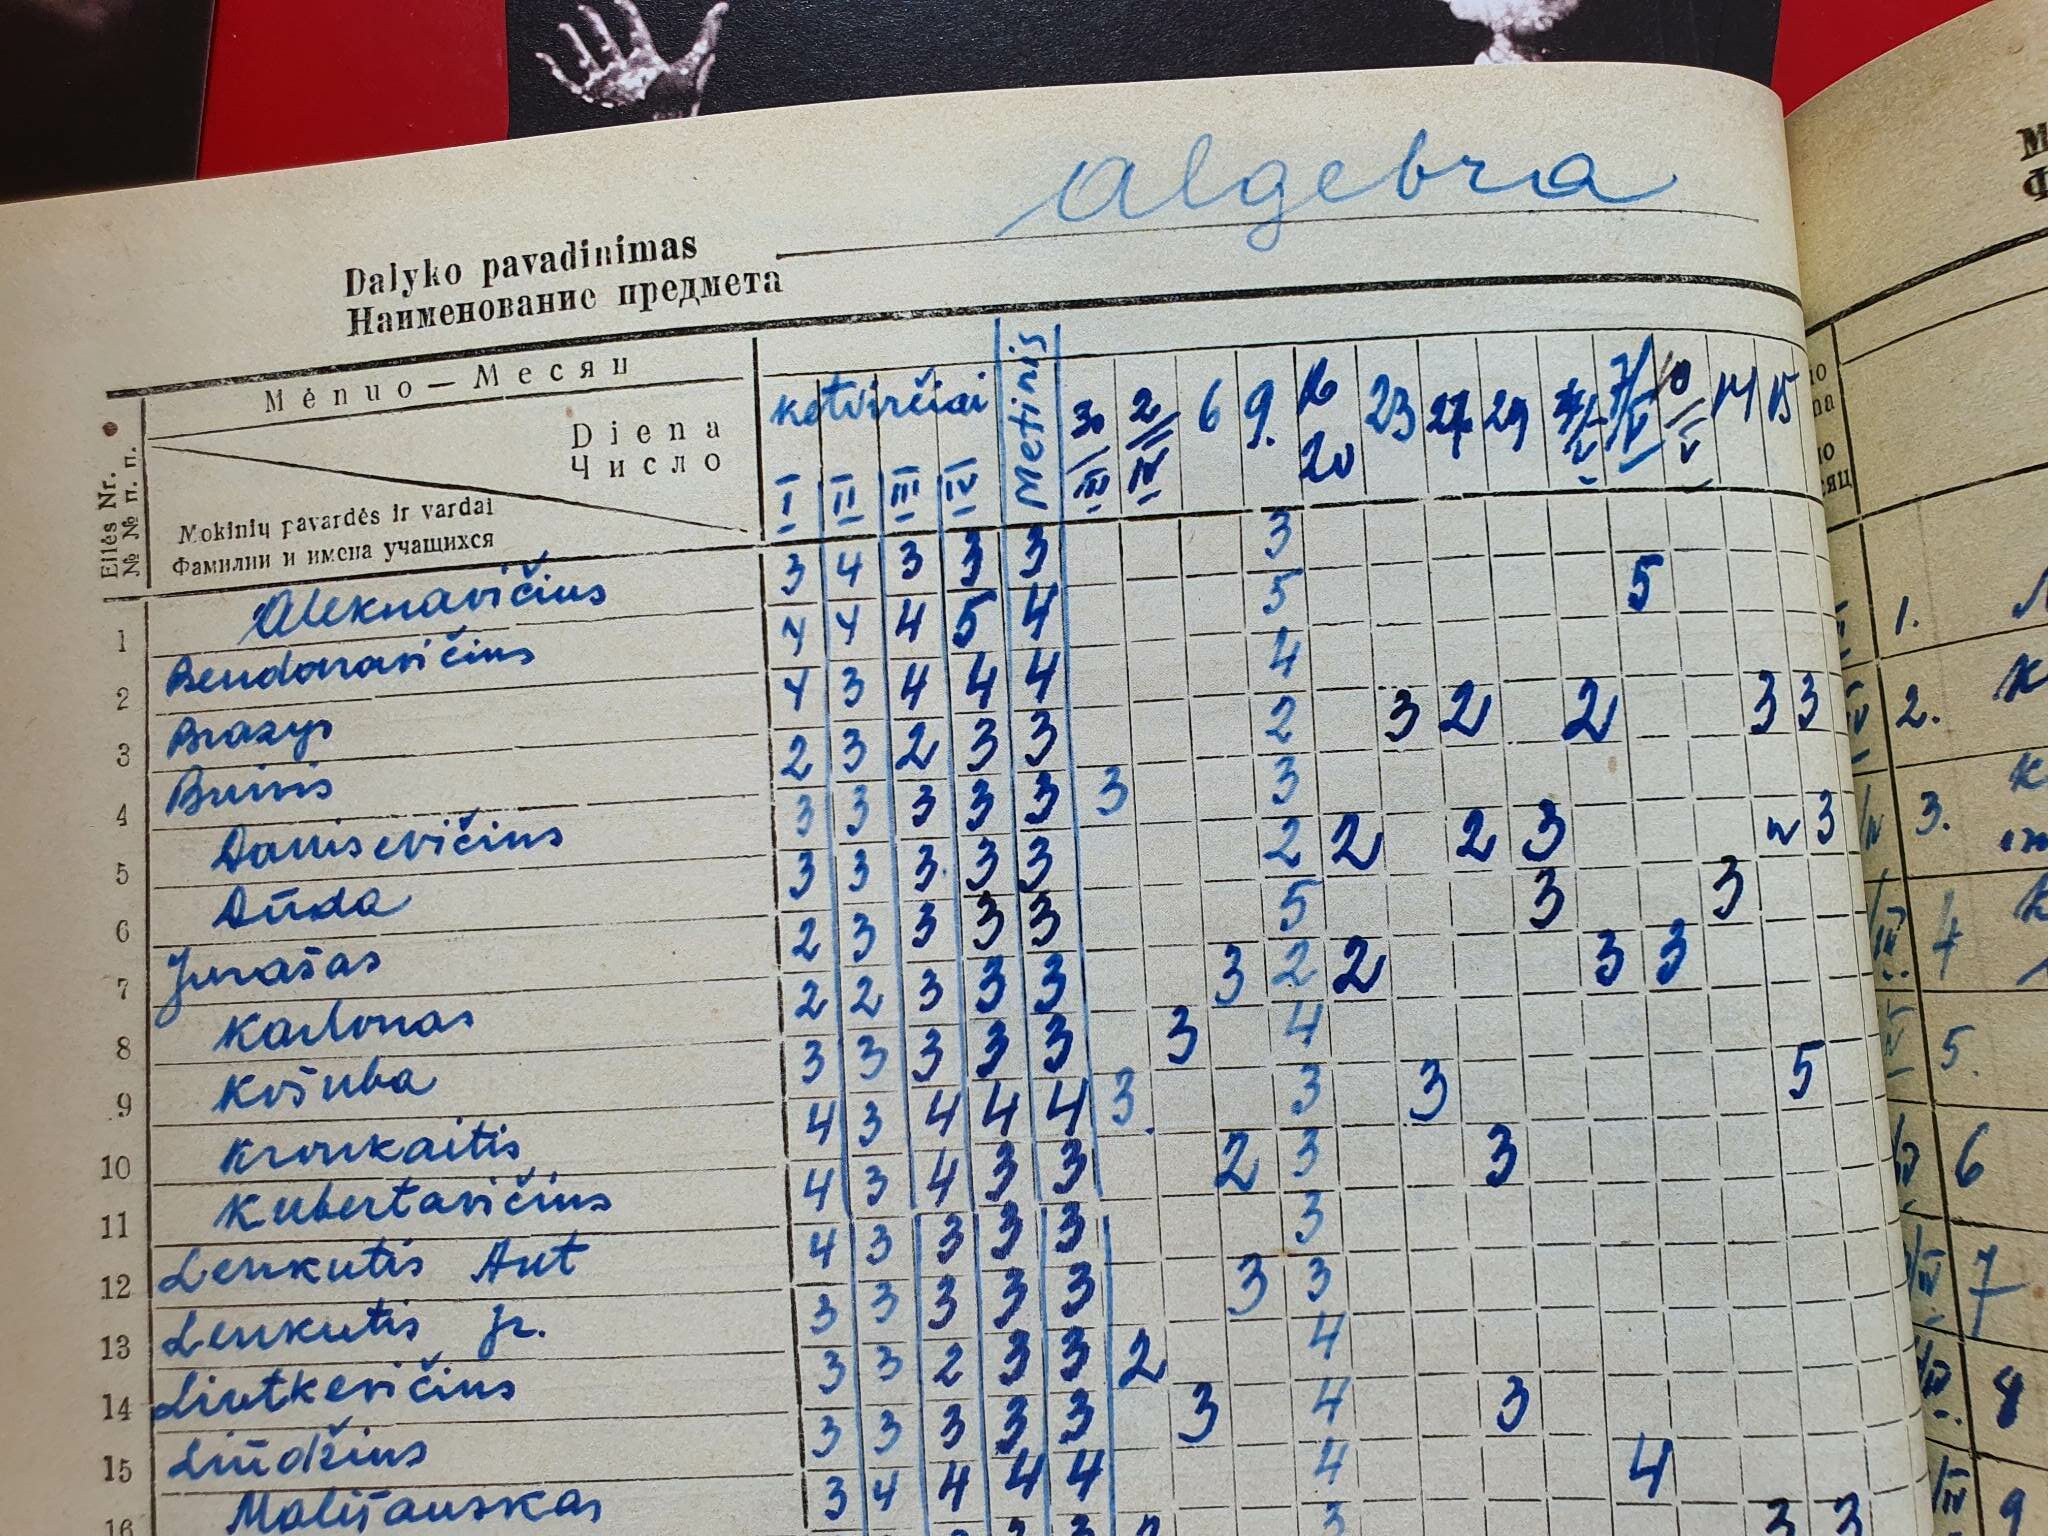 algebra
Dalyko pavadinimas
Наименование предмета
Mėnuo — Месяц
Diena
Число
Eilės Nr.
№ № п. п.
Mokinių pavardės ir vardai
Фамилии и имена учащихся
ketvirčiai Metinis
I II III IV
30/III 2/IV 6 9. 16 20 23 27 29 7/V 10/V 14 15
3 4 3 3 3 3
1 Aleknavičius 4 4 4 5 4 5 5
2 Bendoravičius 4 3 4 4 4 4
3 Brazys 2 3 2 3 3 2 3 2 2 3 3
4 Buivis 3 3 3 3 3 3 3
5 Danisevičius 3 3 3 3 3 2 2 2 3 3
6 Dūda 2 3 3 3 3 5 3 3
7 Jurašas 2 2 3 3 3 3 2 2 3 3
8 Karlonas 3 3 3 3 3 3 4
9 Košuba 4 3 4 4 4 3. 3 3 5
10 Kronkaitis 4 3 4 3 3 2 3 3
11 Kubertavičius 4 3 3 3 3 3
12 Lenkutis Ant 3 3 3 3 3 3 3
13 Lenkutis Jr. 3 3 2 3 3 2 4
14 Liutkevičius 3 3 3 3 3 3 4 3
15 Liūdžius 3 4 4 4 4 4 4
16 Mališauskas
1.
2.
3.
4
5.
6
7
8
9